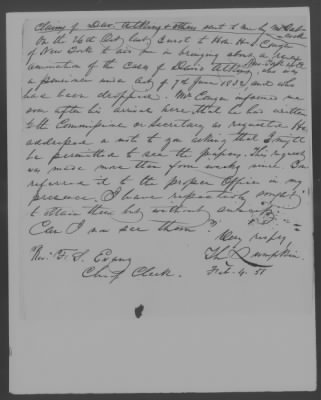 Claim of Davi Atkins & others sent to me by
On the 26th Oct last I wrote to Hon. H. S. Conger
of New York to aid me in bringing about a reex-
amination of the Case of Davis Atkins, who was
a pensioner under Act of 7th June 1832, and who
has been dropped. Mr Conger informed me
soon after his arrival here, that he had written
to the Commissioner or Secretary as requested. He
addressed a note to you asking that I might
be permitted to see the papers. This request
was made more than four weeks since. You
referred it to the proper Office in my
presence. I have repeatedly sought
to obtain them but without
Can I now see them
Very respy,
Th Lumpkin.
Feb. 4. 51
F. S. Evans
Chief Clerk.